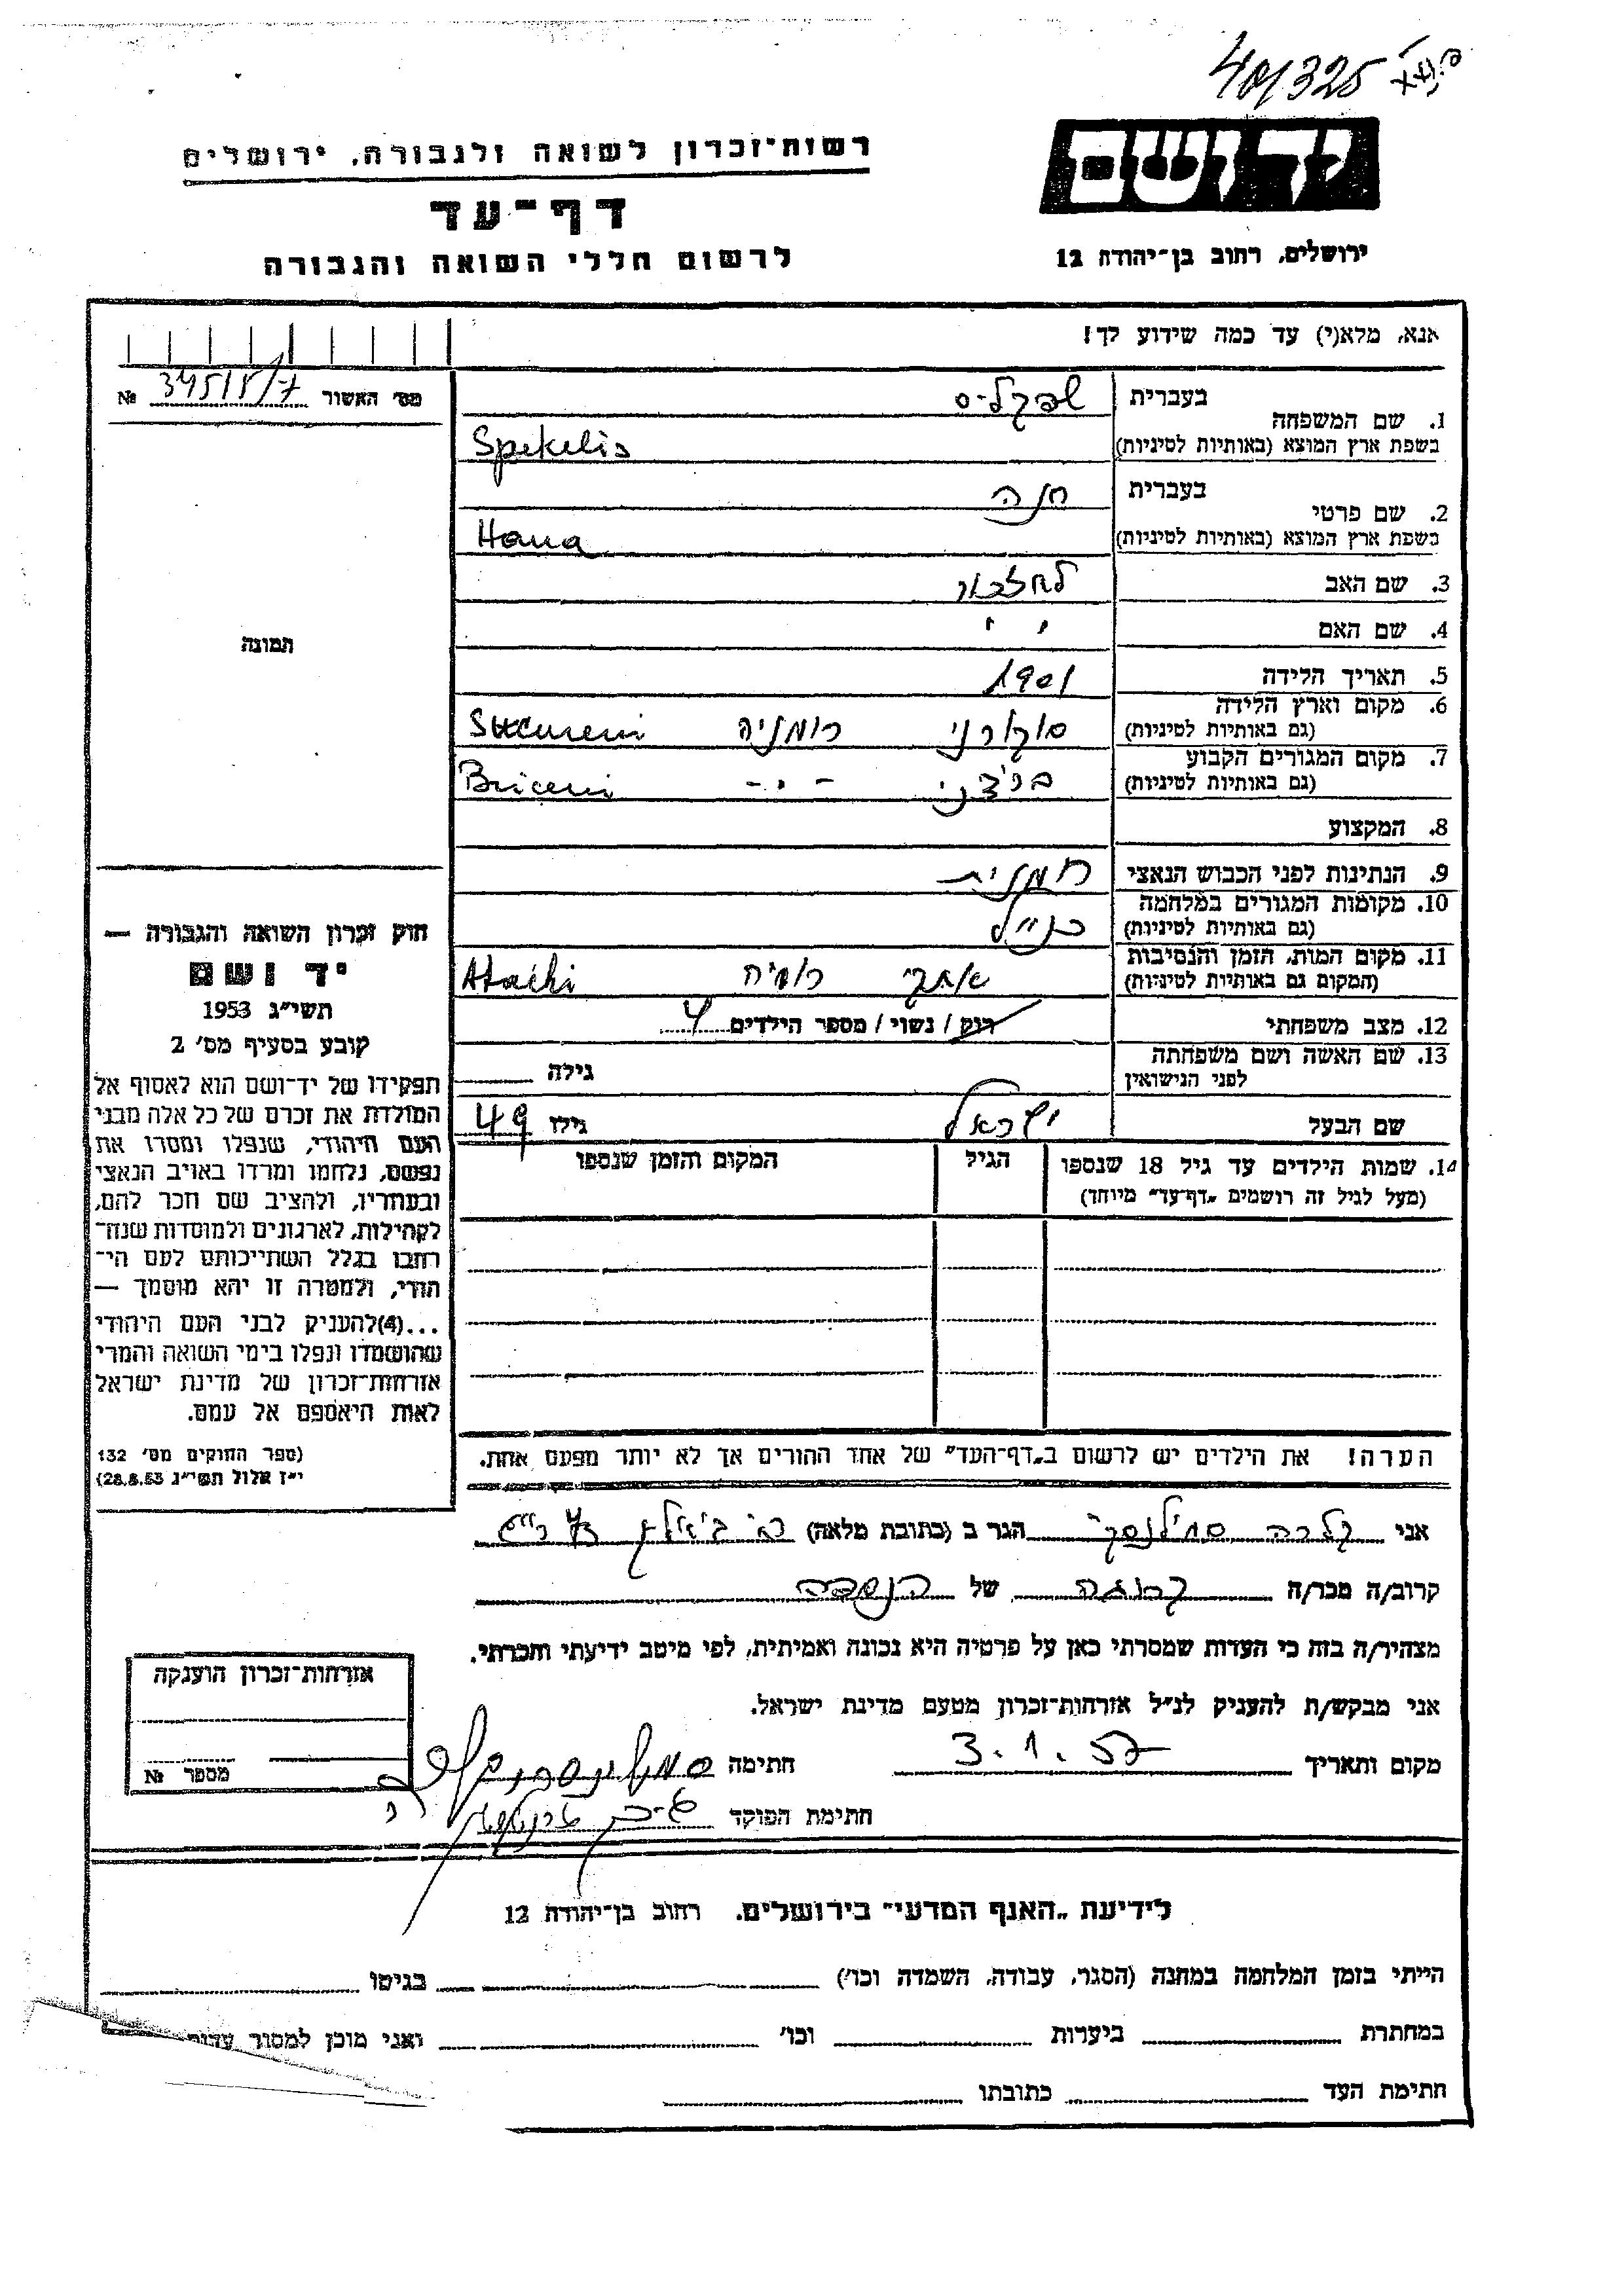 401325
רשות-זכרון לשואה ולגבורה, ירושלים
יד ושם
דף-עד
לרשום חללי השואה והגבורה
ירושלים, רחוב בן-יהודה 12
אנא, מלא(י) עד כמה שידוע לך!
מס׳ האשור 345/5/7 №
1. שם המשפחה
בעברית שפקליס
בשפת ארץ המוצא (באותיות לטיניות) Spekelis
2. שם פרטי
בעברית חנה
בשפת ארץ המוצא (באותיות לטיניות) Hana
תמונה
3. שם האב
4. שם האם
5. תאריך הלידה 1901
6. מקום וארץ הלידה
(גם באותיות לטיניות) סוקורני רומניה Sucureni
7. מקום המגורים הקבוע
(גם באותיות לטיניות) בריצ׳ני -"- Briceni
8. המקצוע
9. הנתינות לפני הכבוש הנאצי רומנית
10. מקומות המגורים במלחמה
(גם באותיות לטיניות) כנ״ל
11. מקום המות, הזמן והנסיבות
(המקום גם באותיות לטיניות) אטקי רומניה Atachi
12. מצב משפחתי רוק / נשוי / מספר הילדים 4
13. שם האשה ושם משפחתה
לפני הנישואין גילה
שם הבעל ישראל גילו 49
14. שמות הילדים עד גיל 18 שנספו
(מעל לגיל זה רושמים „דף-עד” מיוחד)
הגיל
המקום והזמן שנספו
הערה! את הילדים יש לרשום ב„דף-העד” של אחד ההורים אך לא יותר מפעם אחת.
חוק זכרון השואה והגבורה —
יד ושם
תשי״ג 1953
קובע בסעיף מס׳ 2
תפקידו של יד-ושם הוא לאסוף אל
המולדת את זכרם של כל אלה מבני
העם היהודי, שנפלו ומסרו את
נפשם, נלחמו ומרדו באויב הנאצי
ובעוזריו, ולהציב שם וזכר להם,
לקהילות, לארגונים ולמוסדות שנח-
רבו בגלל השתייכותם לעם הי-
הודי, ולמטרה זו יהא מוסמך —
...(4) להעניק לבני העם היהודי
שהושמדו ונפלו בימי השואה והמרי
אזרחות-זכרון של מדינת ישראל
לאות היאספם אל עמם.
(ספר החוקים מס׳ 132
י״ז אלול תשי״ג 28.8.53)
אני קלרה סמילנסקי הגר ב (כתובת מלאה)
קרוב/ה מכר/ה קרובה של הנספה
מצהיר/ה בזה כי העדות שמסרתי כאן על פרטיה היא נכונה ואמיתית, לפי מיטב ידיעתי והכרתי.
אני מבקש/ת להעניק לנ״ל אזרחות-זכרון מטעם מדינת ישראל.
מקום ותאריך 3.1.57 חתימה
חתימת הפוקד
אזרחות-זכרון הוענקה
מספר №
לידיעת „האגף המדעי” בירושלים, רחוב בן-יהודה 12
הייתי בזמן המלחמה במחנה (הסגר, עבודה, השמדה וכו׳) בגיטו
במחתרת ביערות וכו׳ ואני מוכן למסור עדות
חתימת העד כתובתו